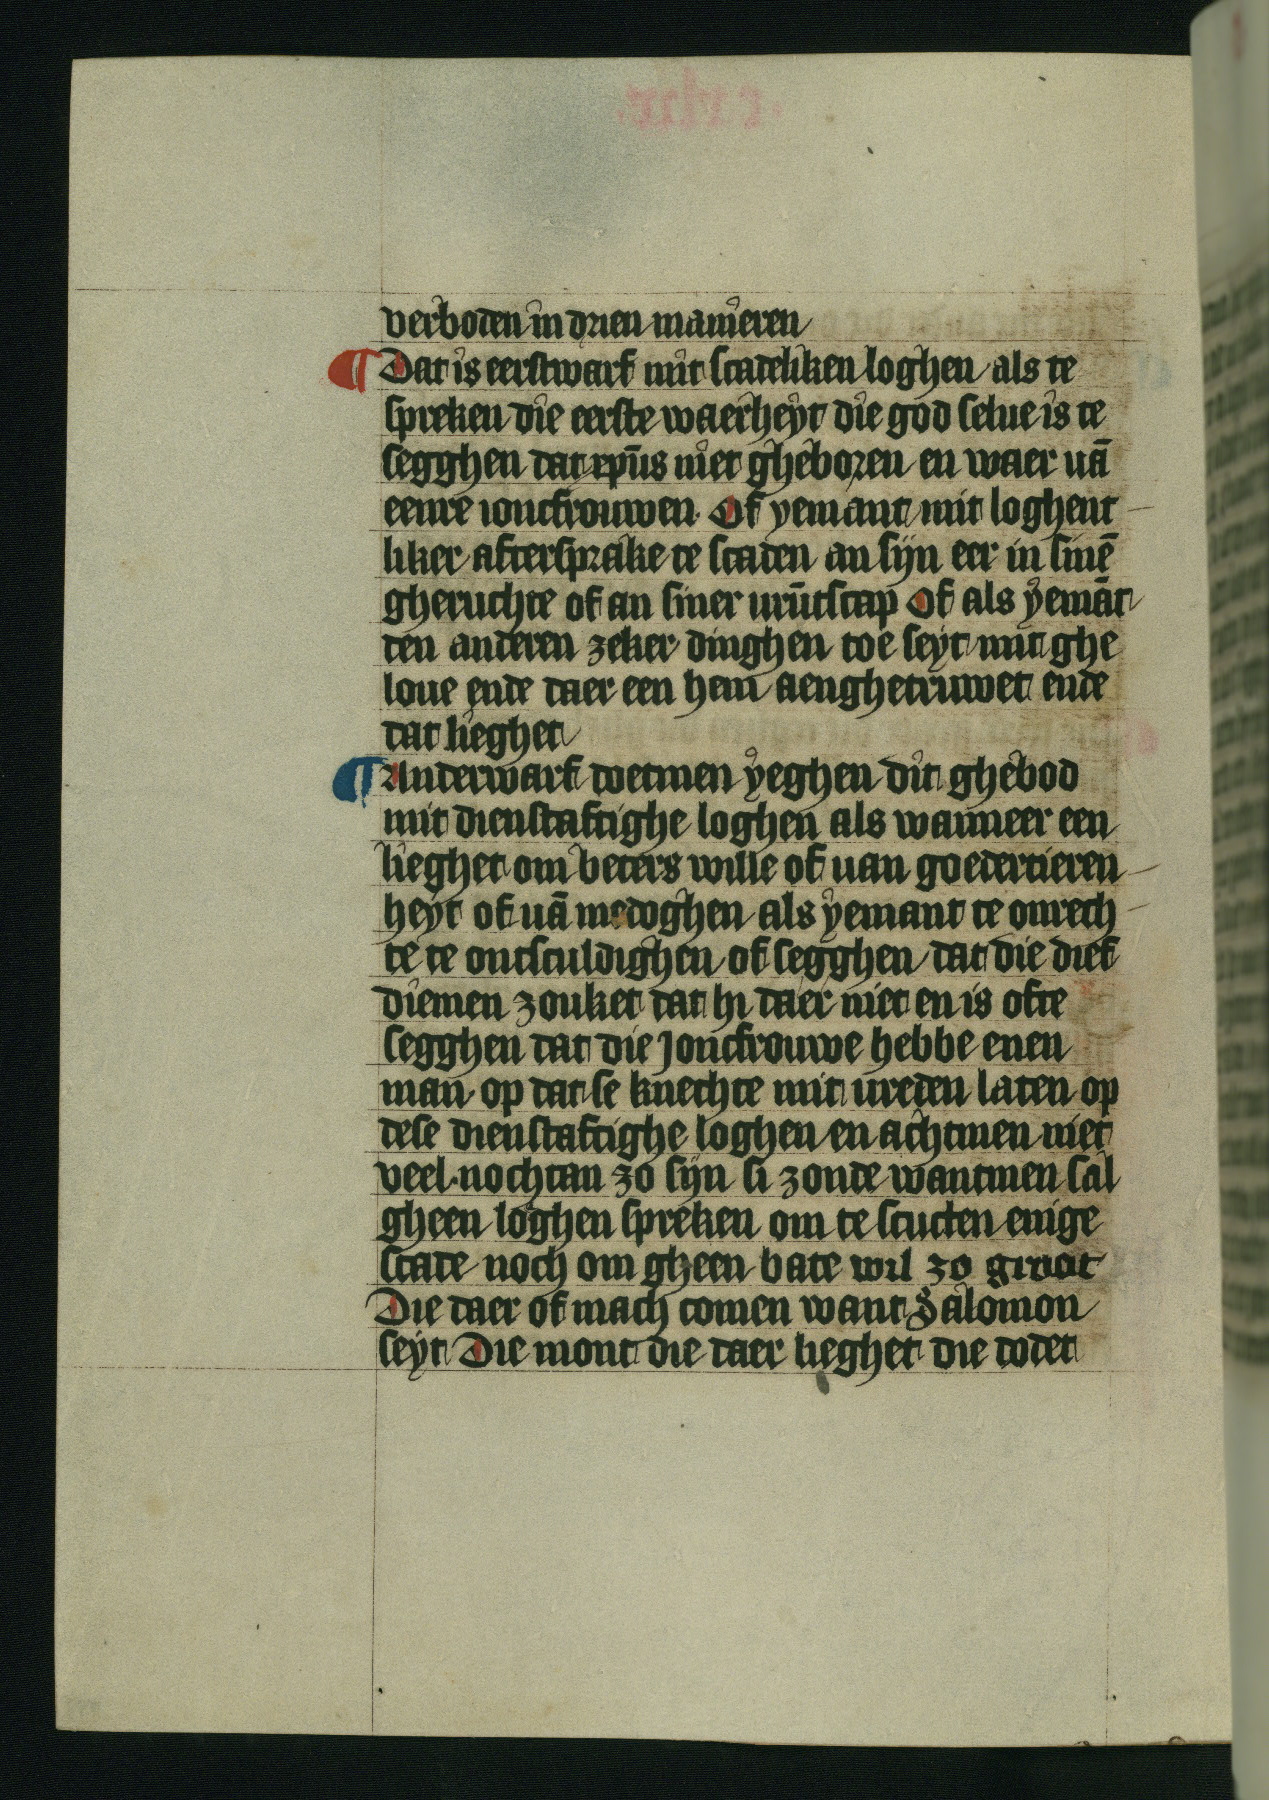 verboden in drien manieren
¶ Dat is eerstwarf mit scadeliken loghen als te
spreken die eerste waerheyt die god selue is te
segghen dat xpūs niet gheboren en waer uā
eenre ioncfrouwen. Of yemant mit loghent
liker aftersprake te scaden an sijn eer in sinē
gheruchte of an siner urūtscap Of als yemāt
den anderen zeker dinghen toe seyt mit ghe
loue ende daer een hem aenghetruwet ende
dat lieghet
¶ Anderwarf doetmen yeghen dit ghebod
mit dienstaftighe loghen als wanneer een
lieghet om beters wille of uan goedertieren
heyt of uā medoghen als yemant te onrech
te te ontsculdighen of segghen dat die dief
diemen zouket dat hi daer niet en is ofte
segghen dat die joncfrouwe hebbe enen
man op dat se knechte mit ureden laten op
dese dienstaftighe loghen en achtmen niet
veel. nochtan zo sijn si zonde wantmen sal
gheen loghen spreken om te scuden enige
scade noch om gheen bate wil zo groot
Die daer of mach comen want Salomon
seyt Die mont die daer lieghet die dodet